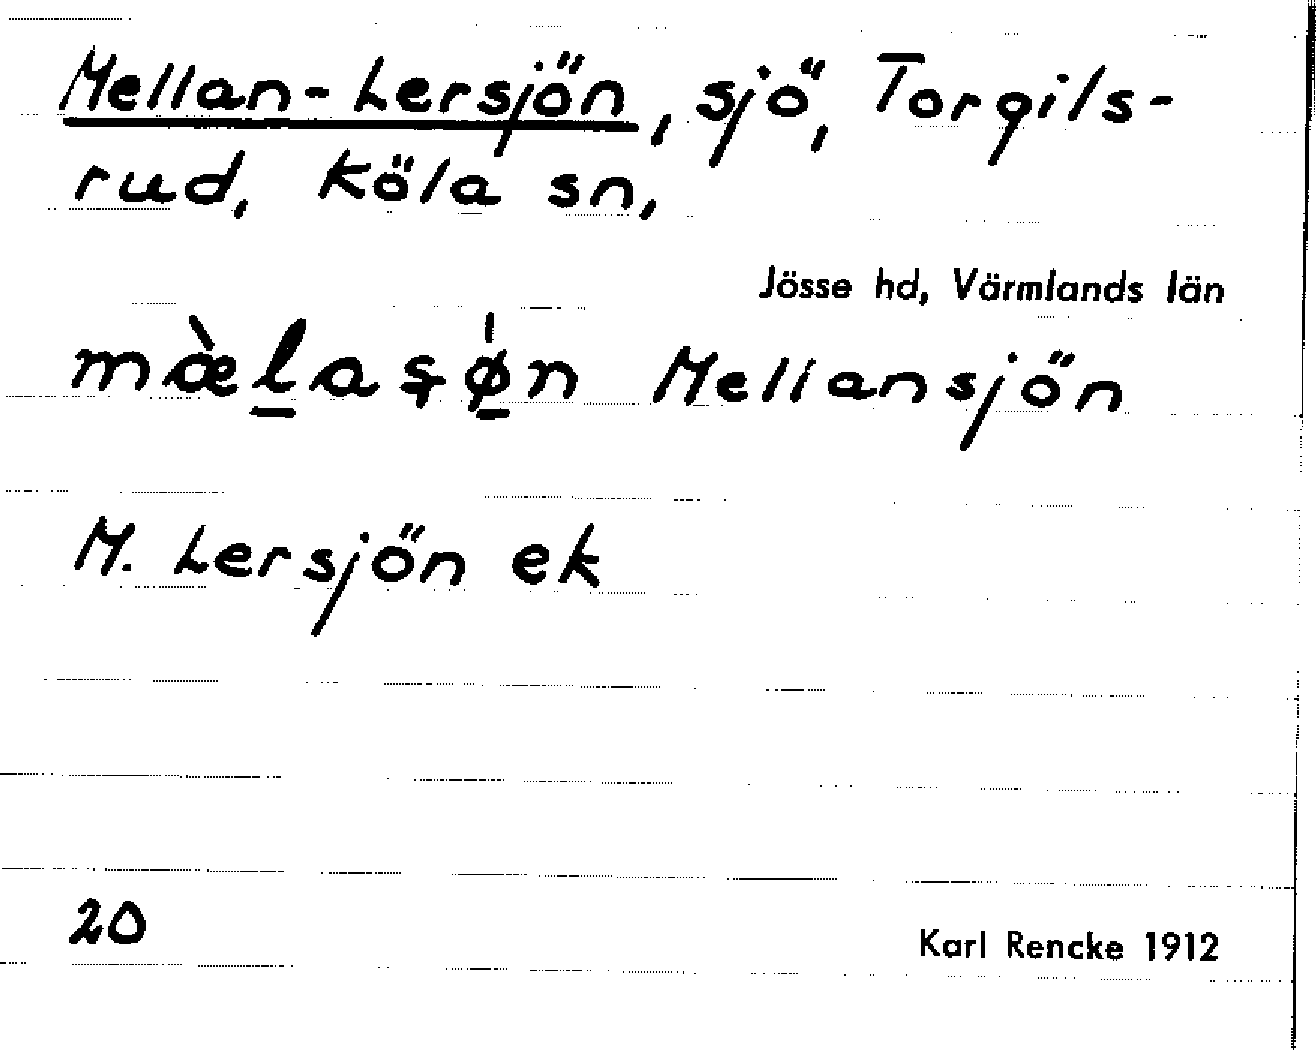 Mellan-Lersjön, sjö, Torgils-
rud, Köla sn,
Jösse hd, Värmlands län
Mellansjön
M. Lersjön ek
20
Karl Rencke 1912